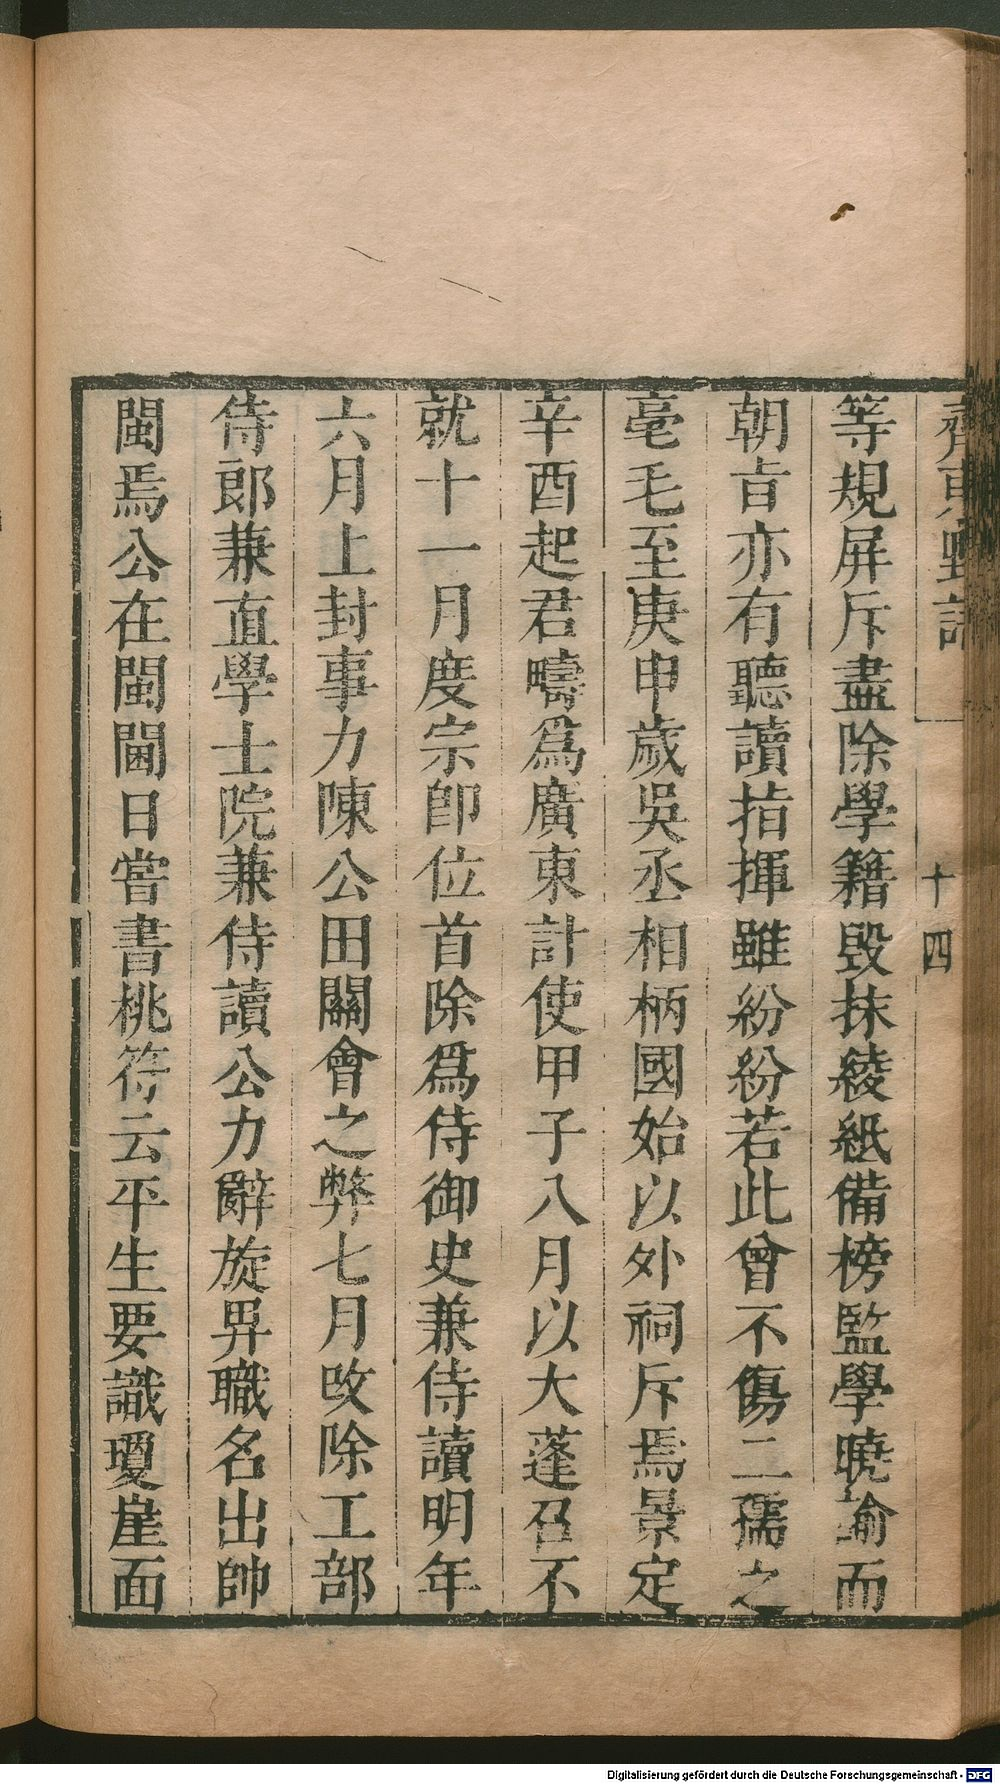 齊東野語
十四
等規屏斥盡除學籍毀抹綾紙備榜監學曉諭而
朝旨亦有聽讀指揮雖紛紛若此曾不傷二孺之
毫毛至庚申歲吳丞相柄國始以外祠斥焉景定
辛酉起君疇爲廣東計使甲子八月以大蓬召不
就十一月度宗卽位首除爲侍御史兼侍讀明年
六月上封事力陳公田關會之弊七月改除工部
侍郎兼直學士院兼侍讀公力辭旋畀職名出帥
閩焉公在閩閫日嘗書桃符云平生要識瓊崖面
Digitalisierung gefördert durch die Deutsche Forschungsgemeinschaft - DFG